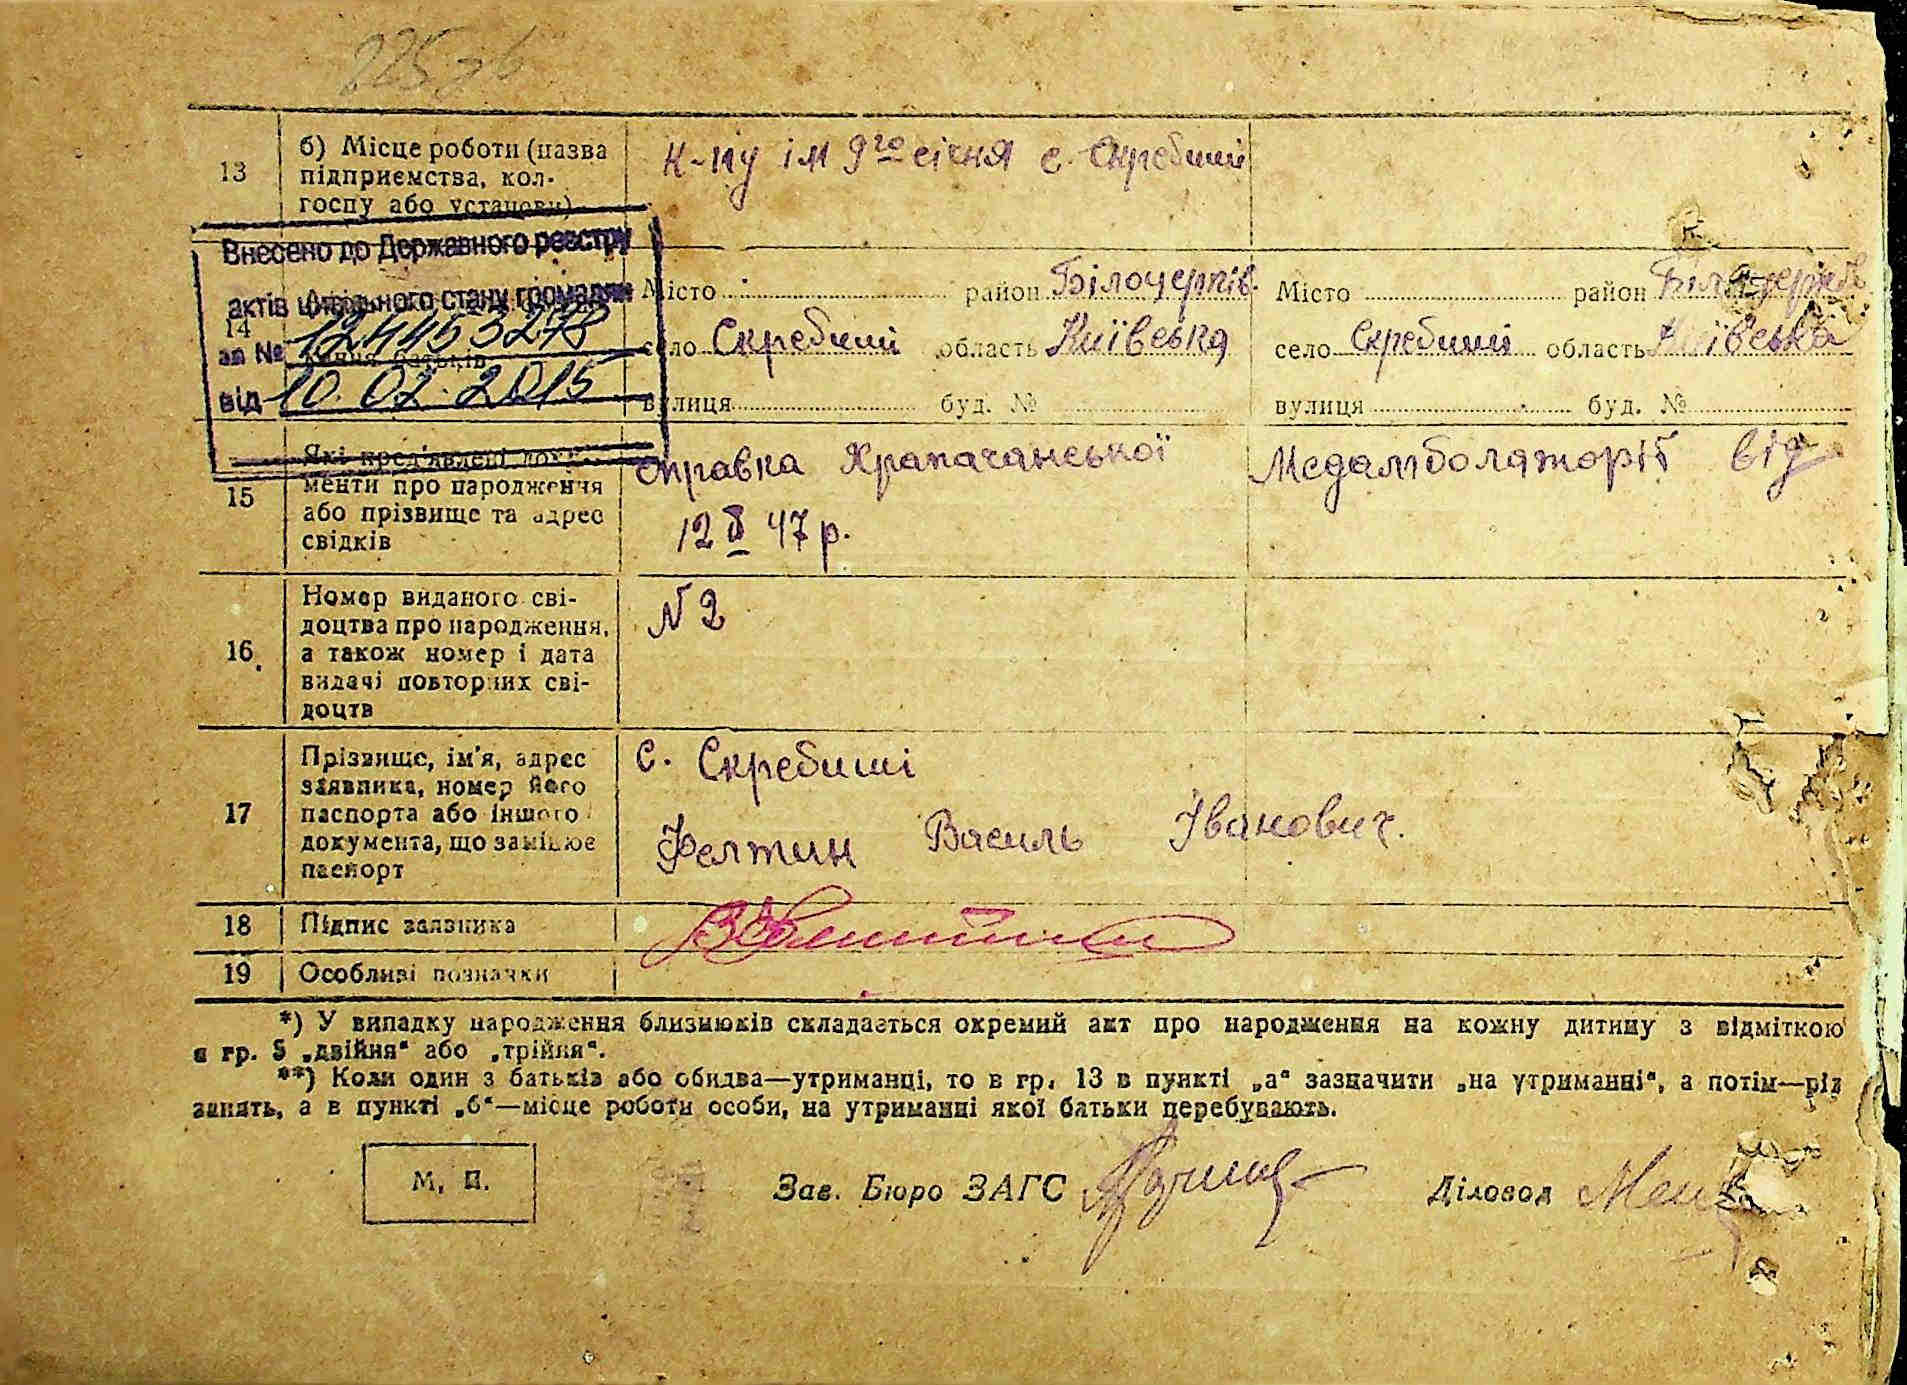 225 зв
13
б) Місце роботи (назва
підприємства, кол-
госпу або установи)
к-пу ім 9го січня с. Скребиші
Внесено до Державного реєстру
актів цивільного стану громадян
за № 12445 3278
від 10.02.2015
14
ння батьків
Місто район Білоцерків.
село Скребиші область Київська
вулиця буд. №
Місто район Білоцерків
село Скребиші область Київська
вулиця буд. №
15
Які пред'явлені доку-
менти про народження
або прізвище та адрес
свідків
Справка Храпачанської Медамболяторії від
12 V 47 р.
16
Номер виданого сві-
доцтва про народження,
а також номер і дата
видачі повторних сві-
доцтв
N 2
17
Прізвище, ім'я, адрес
заявника, номер його
паспорта або іншого
документа, що замінює
паспорт
с. Скребиші
Василь Іванович.
18
Підпис заявника
19
Особливі позначки
*) У випадку народження близнюків складається окремий акт про народження на кожну дитину з відміткою
в гр. 5 „двійня“ або „трійня“.
**) Коли один з батьків або обидва—утриманці, то в гр. 13 в пункті „а“ зазначити „на утриманні“, а потім—рід
занять, а в пункті „б“—місце роботи особи, на утриманні якої батьки перебувають.
М. П.
Зав. Бюро ЗАГС
Діловод